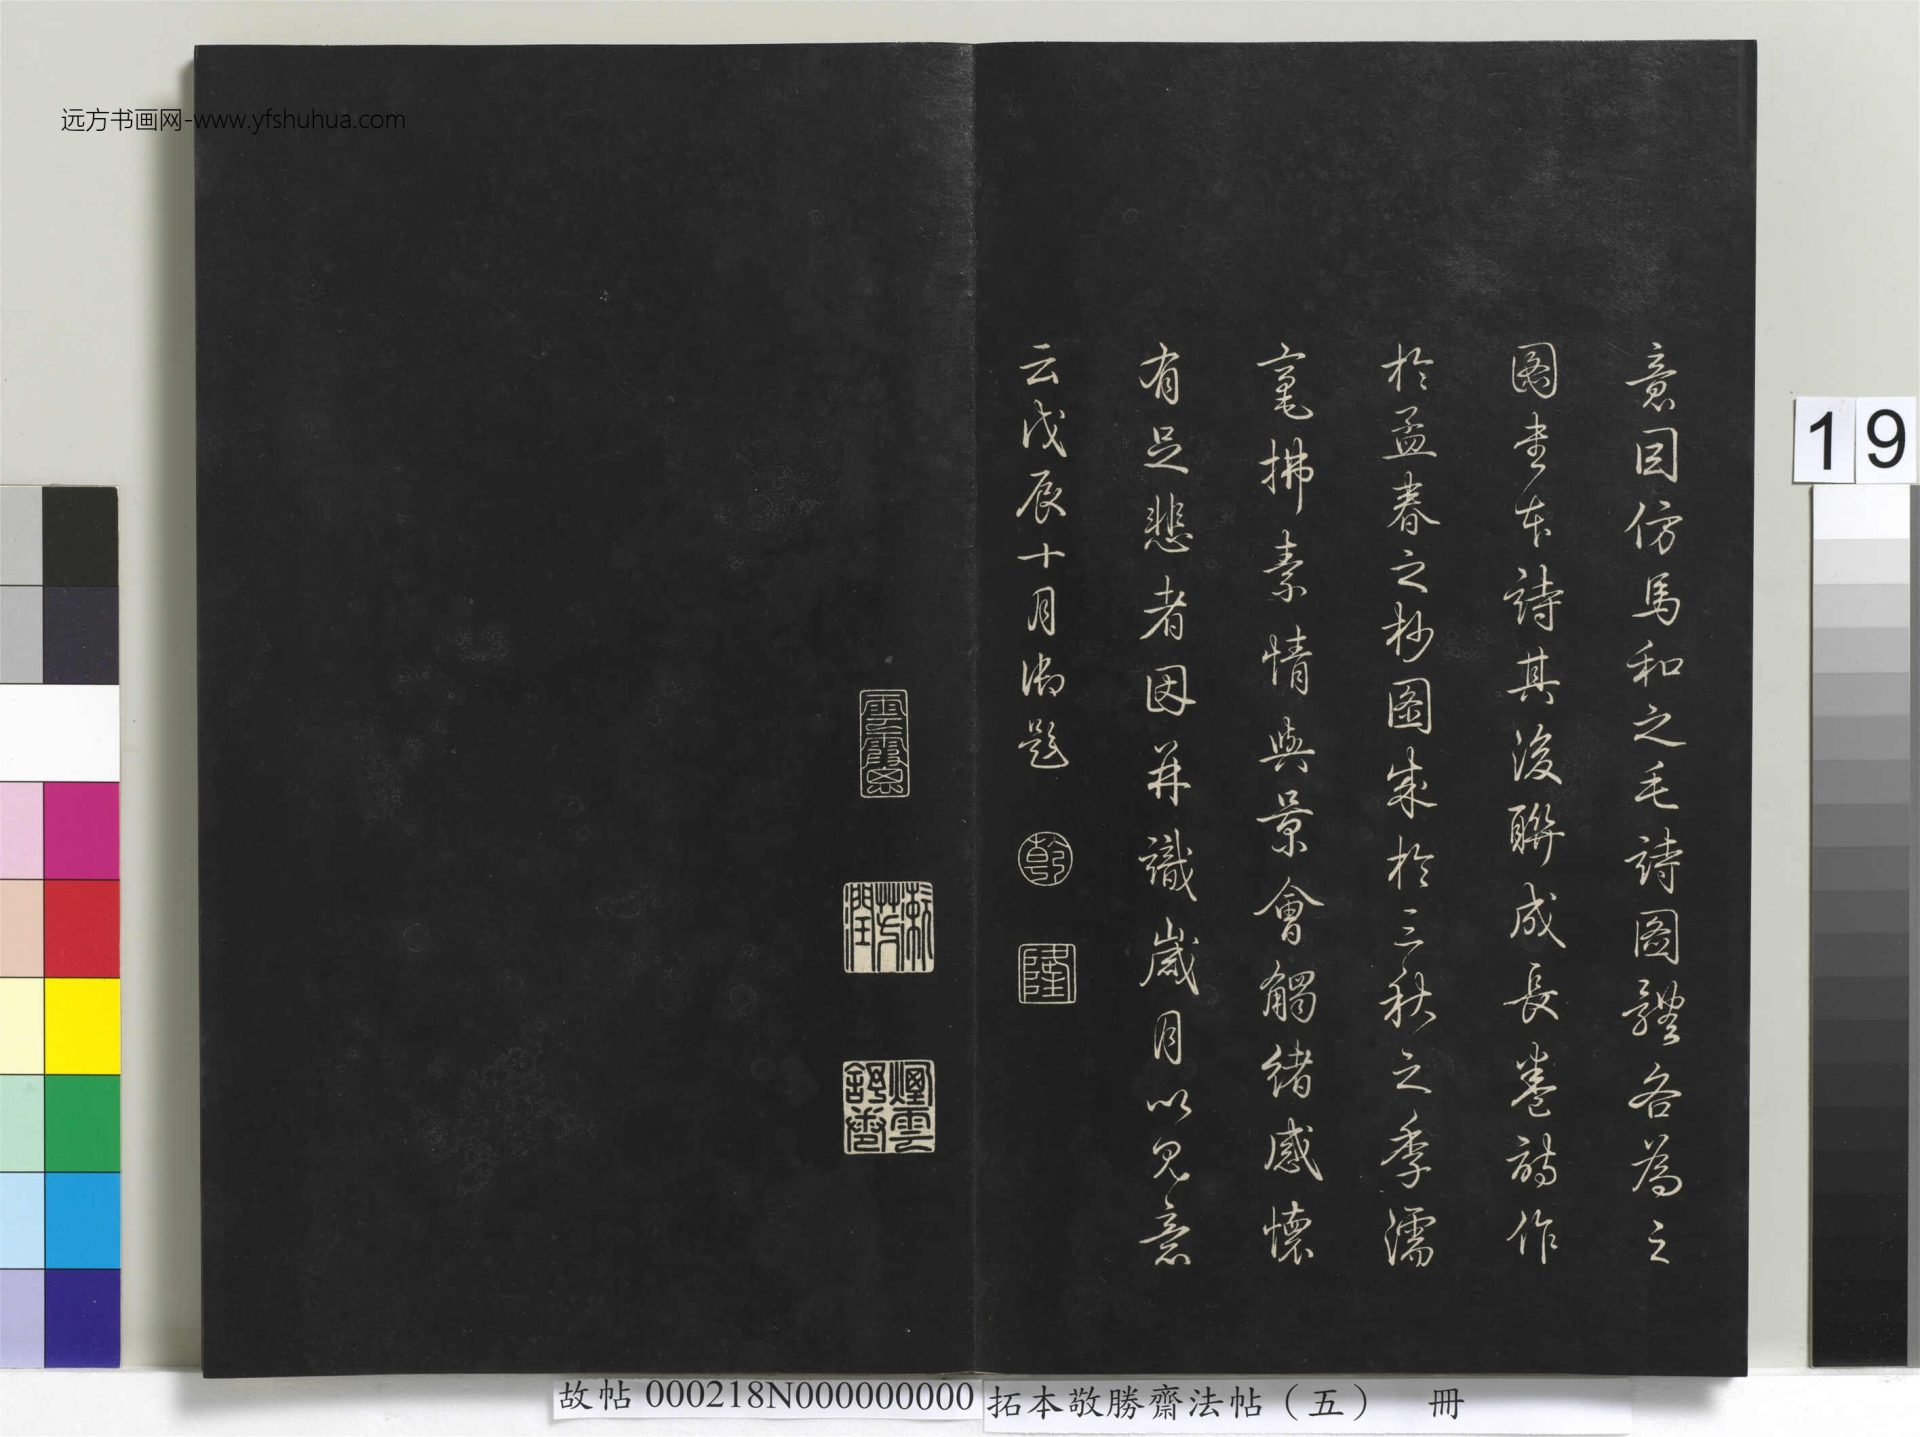 远方书画网-www.yfshuhua.com
意因仿馬和之毛詩圖體各為之
圖書本詩其後聯成長卷詩作
於孟春之杪圖成於三秋之季濡
毫拂素情與景會觸緒感懷
有足悲者因并識歲月以見意
云戊辰十月御題
乾
隆
雲霞思
漱芳潤
煙雲舒卷
19
故帖 000218N000000000 拓本敬勝齋法帖（五） 冊